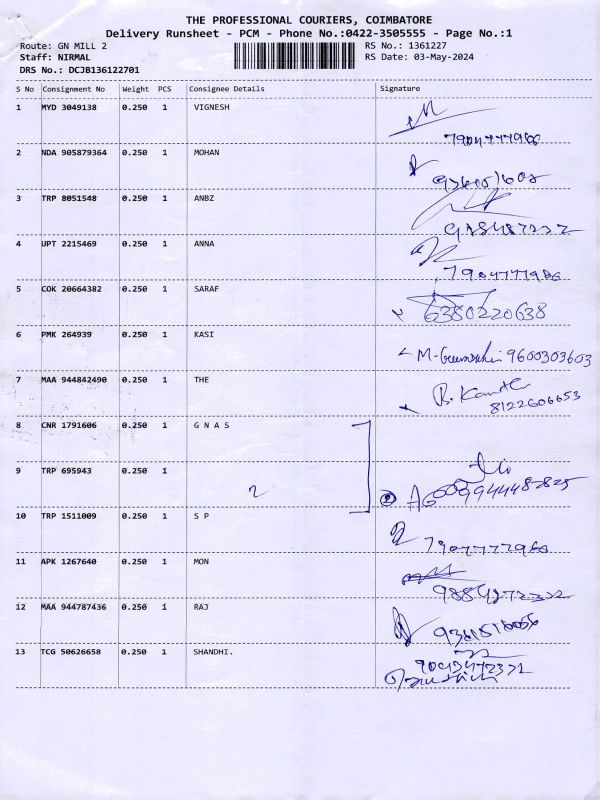 THE PROFESSIONAL COURIERS, COIMBATORE
Delivery Runsheet - PCM - Phone No.:0422-3505555 - Page No.:1
Route: GN MILL 2 RS No.: 1361227
Staff: NIRMAL RS Date: 03-May-2024
DRS No.: DCJB136122701
S No Consignment No Weight PCS Consignee Details Signature
1 MYD 3049138 0.250 1 VIGNESH
7904777966
2 NDA 905879364 0.250 1 MOHAN
3 TRP 8051548 0.250 1 ANBZ
4 UPT 2215469 0.250 1 ANNA
7904777966
5 COK 20664382 0.250 1 SARAF
6380220638
6 PMK 264939 0.250 1 KASI
9600303603
7 MAA 944842490 0.250 1 THE
8122606653
8 CNR 1791606 0.250 1 G N A S
9 TRP 695943 0.250 1
2
10 TRP 1511009 0.250 1 S P
7904777966
11 APK 1267640 0.250 1 MON
12 MAA 944787436 0.250 1 RAJ
13 TCG 50626658 0.250 1 SHANDHI.